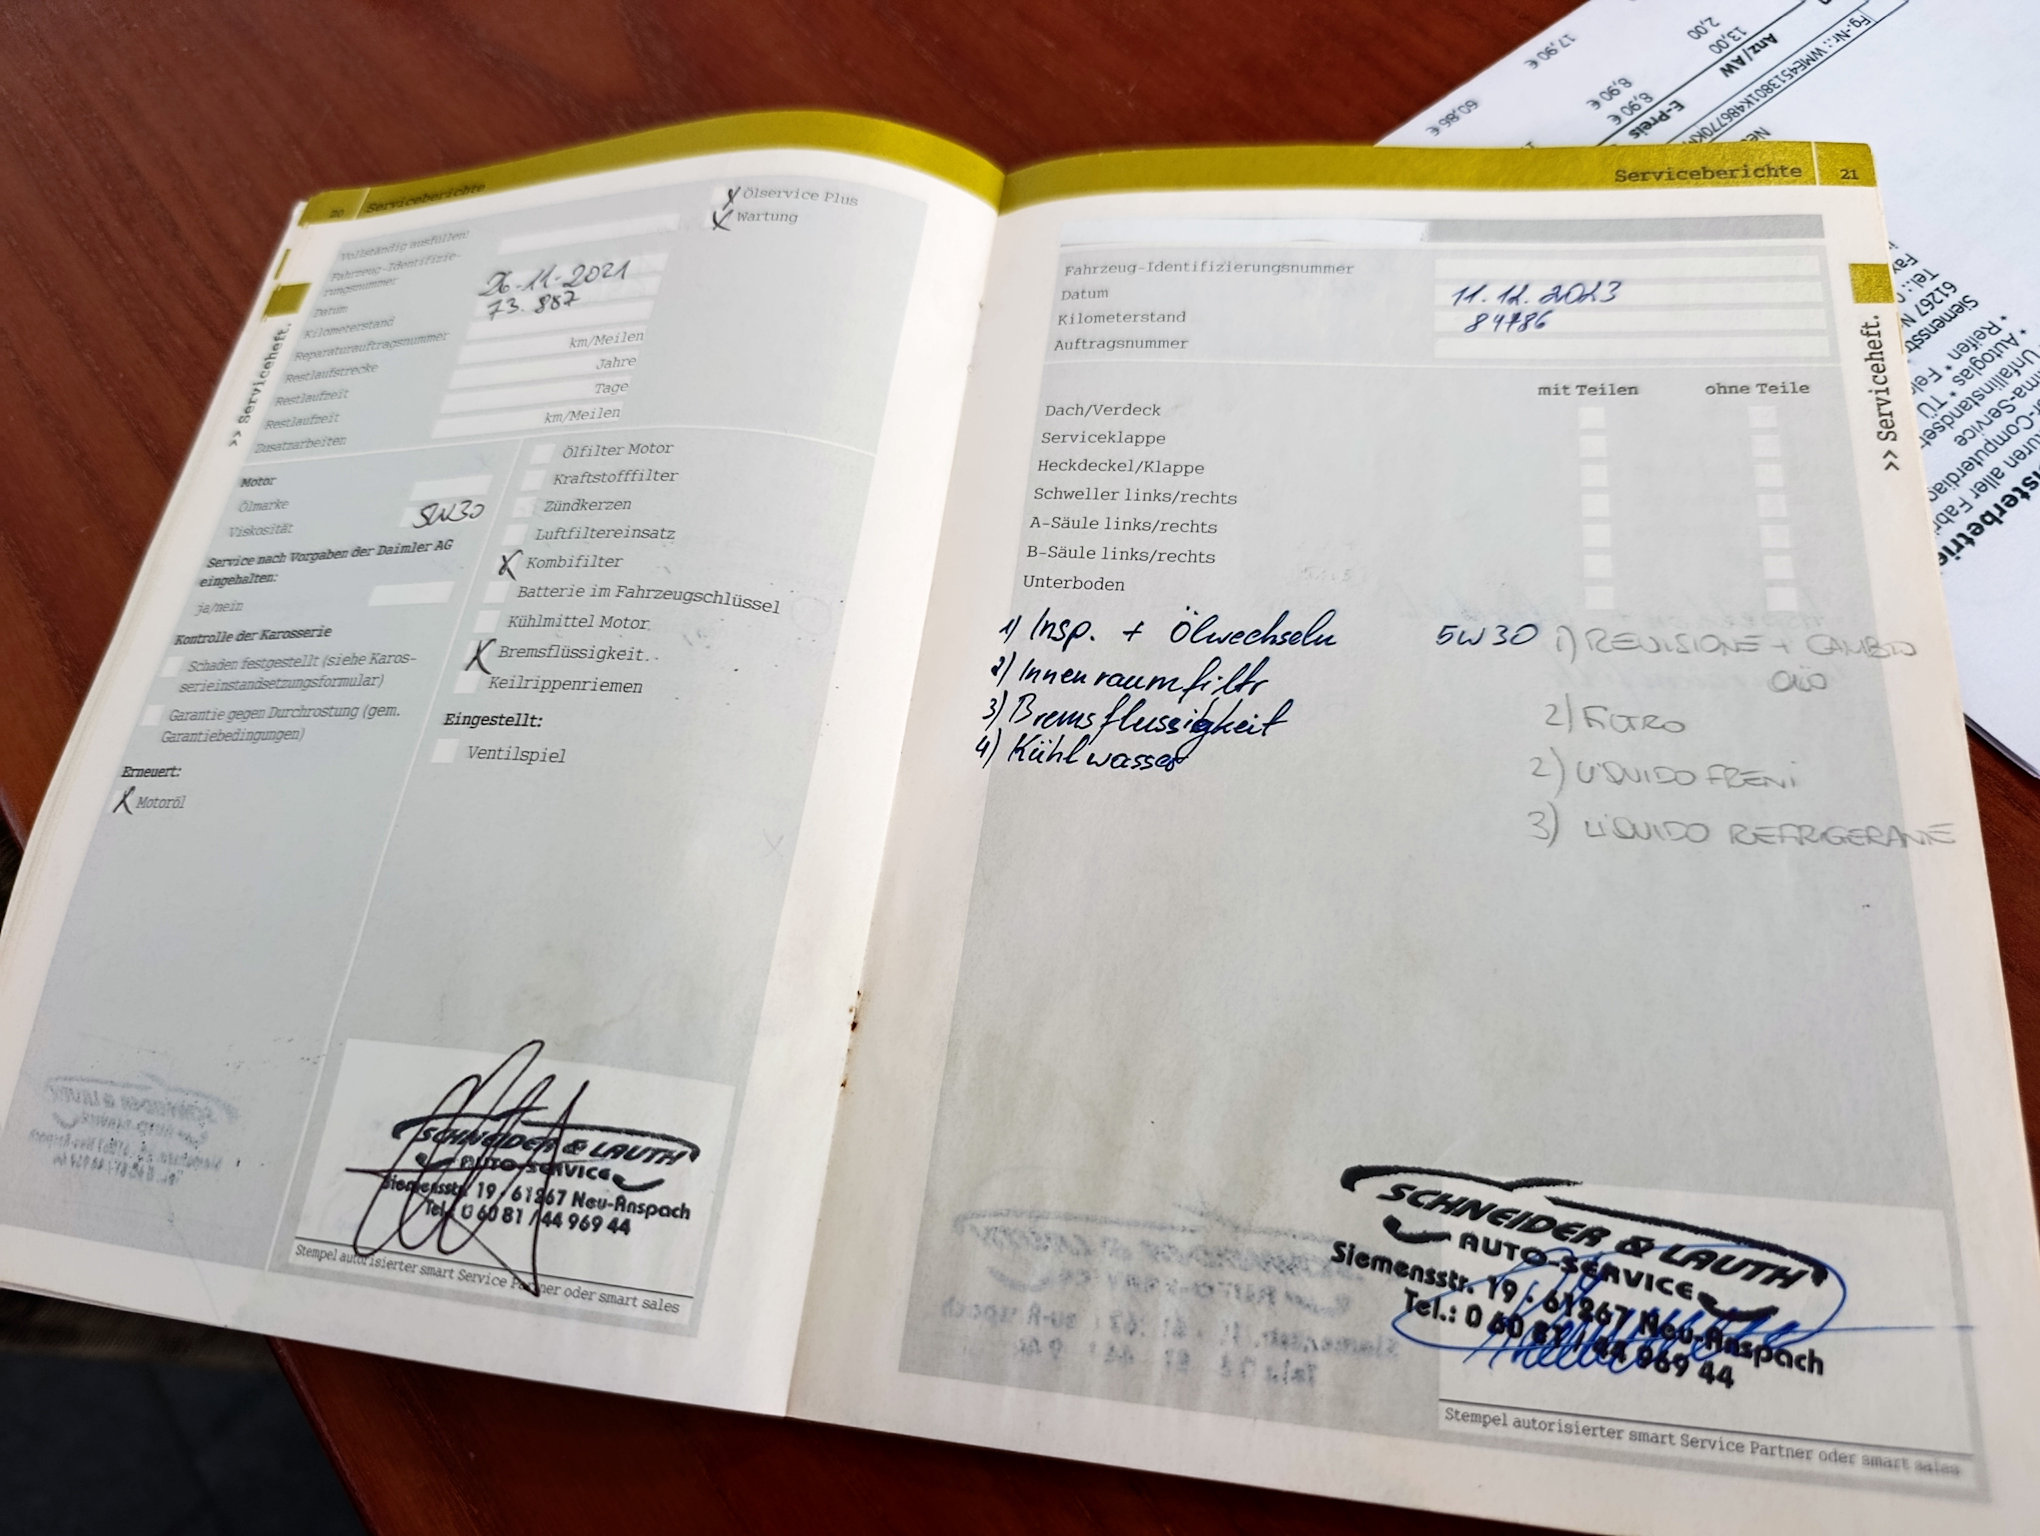 20 Serviceberichte
Ölservice Plus
Wartung
Vollständig ausfüllen:
Fahrzeug-Identifizie-
rungsnummer
Datum 26.11.2021
Kilometerstand 73.887
Reparaturauftragsnummer
Restlaufstrecke km/Meilen
Restlaufzeit Jahre
Restlaufzeit Tage
Zusatzarbeiten km/Meilen
>> Serviceheft.
Motor
Ölmarke
Viskosität 5W30
Service nach Vorgaben der Daimler AG
eingehalten:
ja/nein
Kontrolle der Karosserie
Schaden festgestellt (siehe Karos-
serieinstandsetzungsformular)
Garantie gegen Durchrostung (gem.
Garantiebedingungen)
Erneuert:
X Motoröl
Ölfilter Motor
Kraftstofffilter
Zündkerzen
Luftfiltereinsatz
X Kombifilter
Batterie im Fahrzeugschlüssel
Kühlmittel Motor
X Bremsflüssigkeit
Keilrippenriemen
Eingestellt:
Ventilspiel
SCHNEIDER & LAUTH
AUTO-SERVICE
Siemensstr. 19 · 61267 Neu-Anspach
Tel.: 0 60 81 / 44 969 44
Stempel autorisierter smart Service Partner oder smart sales
Serviceberichte 21
Fahrzeug-Identifizierungsnummer
Datum 11.12.2023
Kilometerstand 84786
Auftragsnummer
mit Teilen ohne Teile
Dach/Verdeck
Serviceklappe
Heckdeckel/Klappe
Schweller links/rechts
A-Säule links/rechts
B-Säule links/rechts
Unterboden
>> Serviceheft.
1) Insp. + Ölwechseln 5W30
2) Innenraumfiltr
3) Bremsflussigkeit
4) Kühlwasser
1) REVISIONE + CAMBIO
OLIO
2) FILTRO
2) LIQUIDO FRENI
3) LIQUIDO REFRIGERANTE
SCHNEIDER & LAUTH
AUTO-SERVICE
Siemensstr. 19 · 61267 Neu-Anspach
Tel.: 0 60 81 / 44 969 44
Stempel autorisierter smart Service Partner oder smart sales
Fg.-Nr.: WME4513801K48677
Anz/AW E-Preis
13,00 8,90 €
2,00 8,90 €
17,90 €
60,86 €